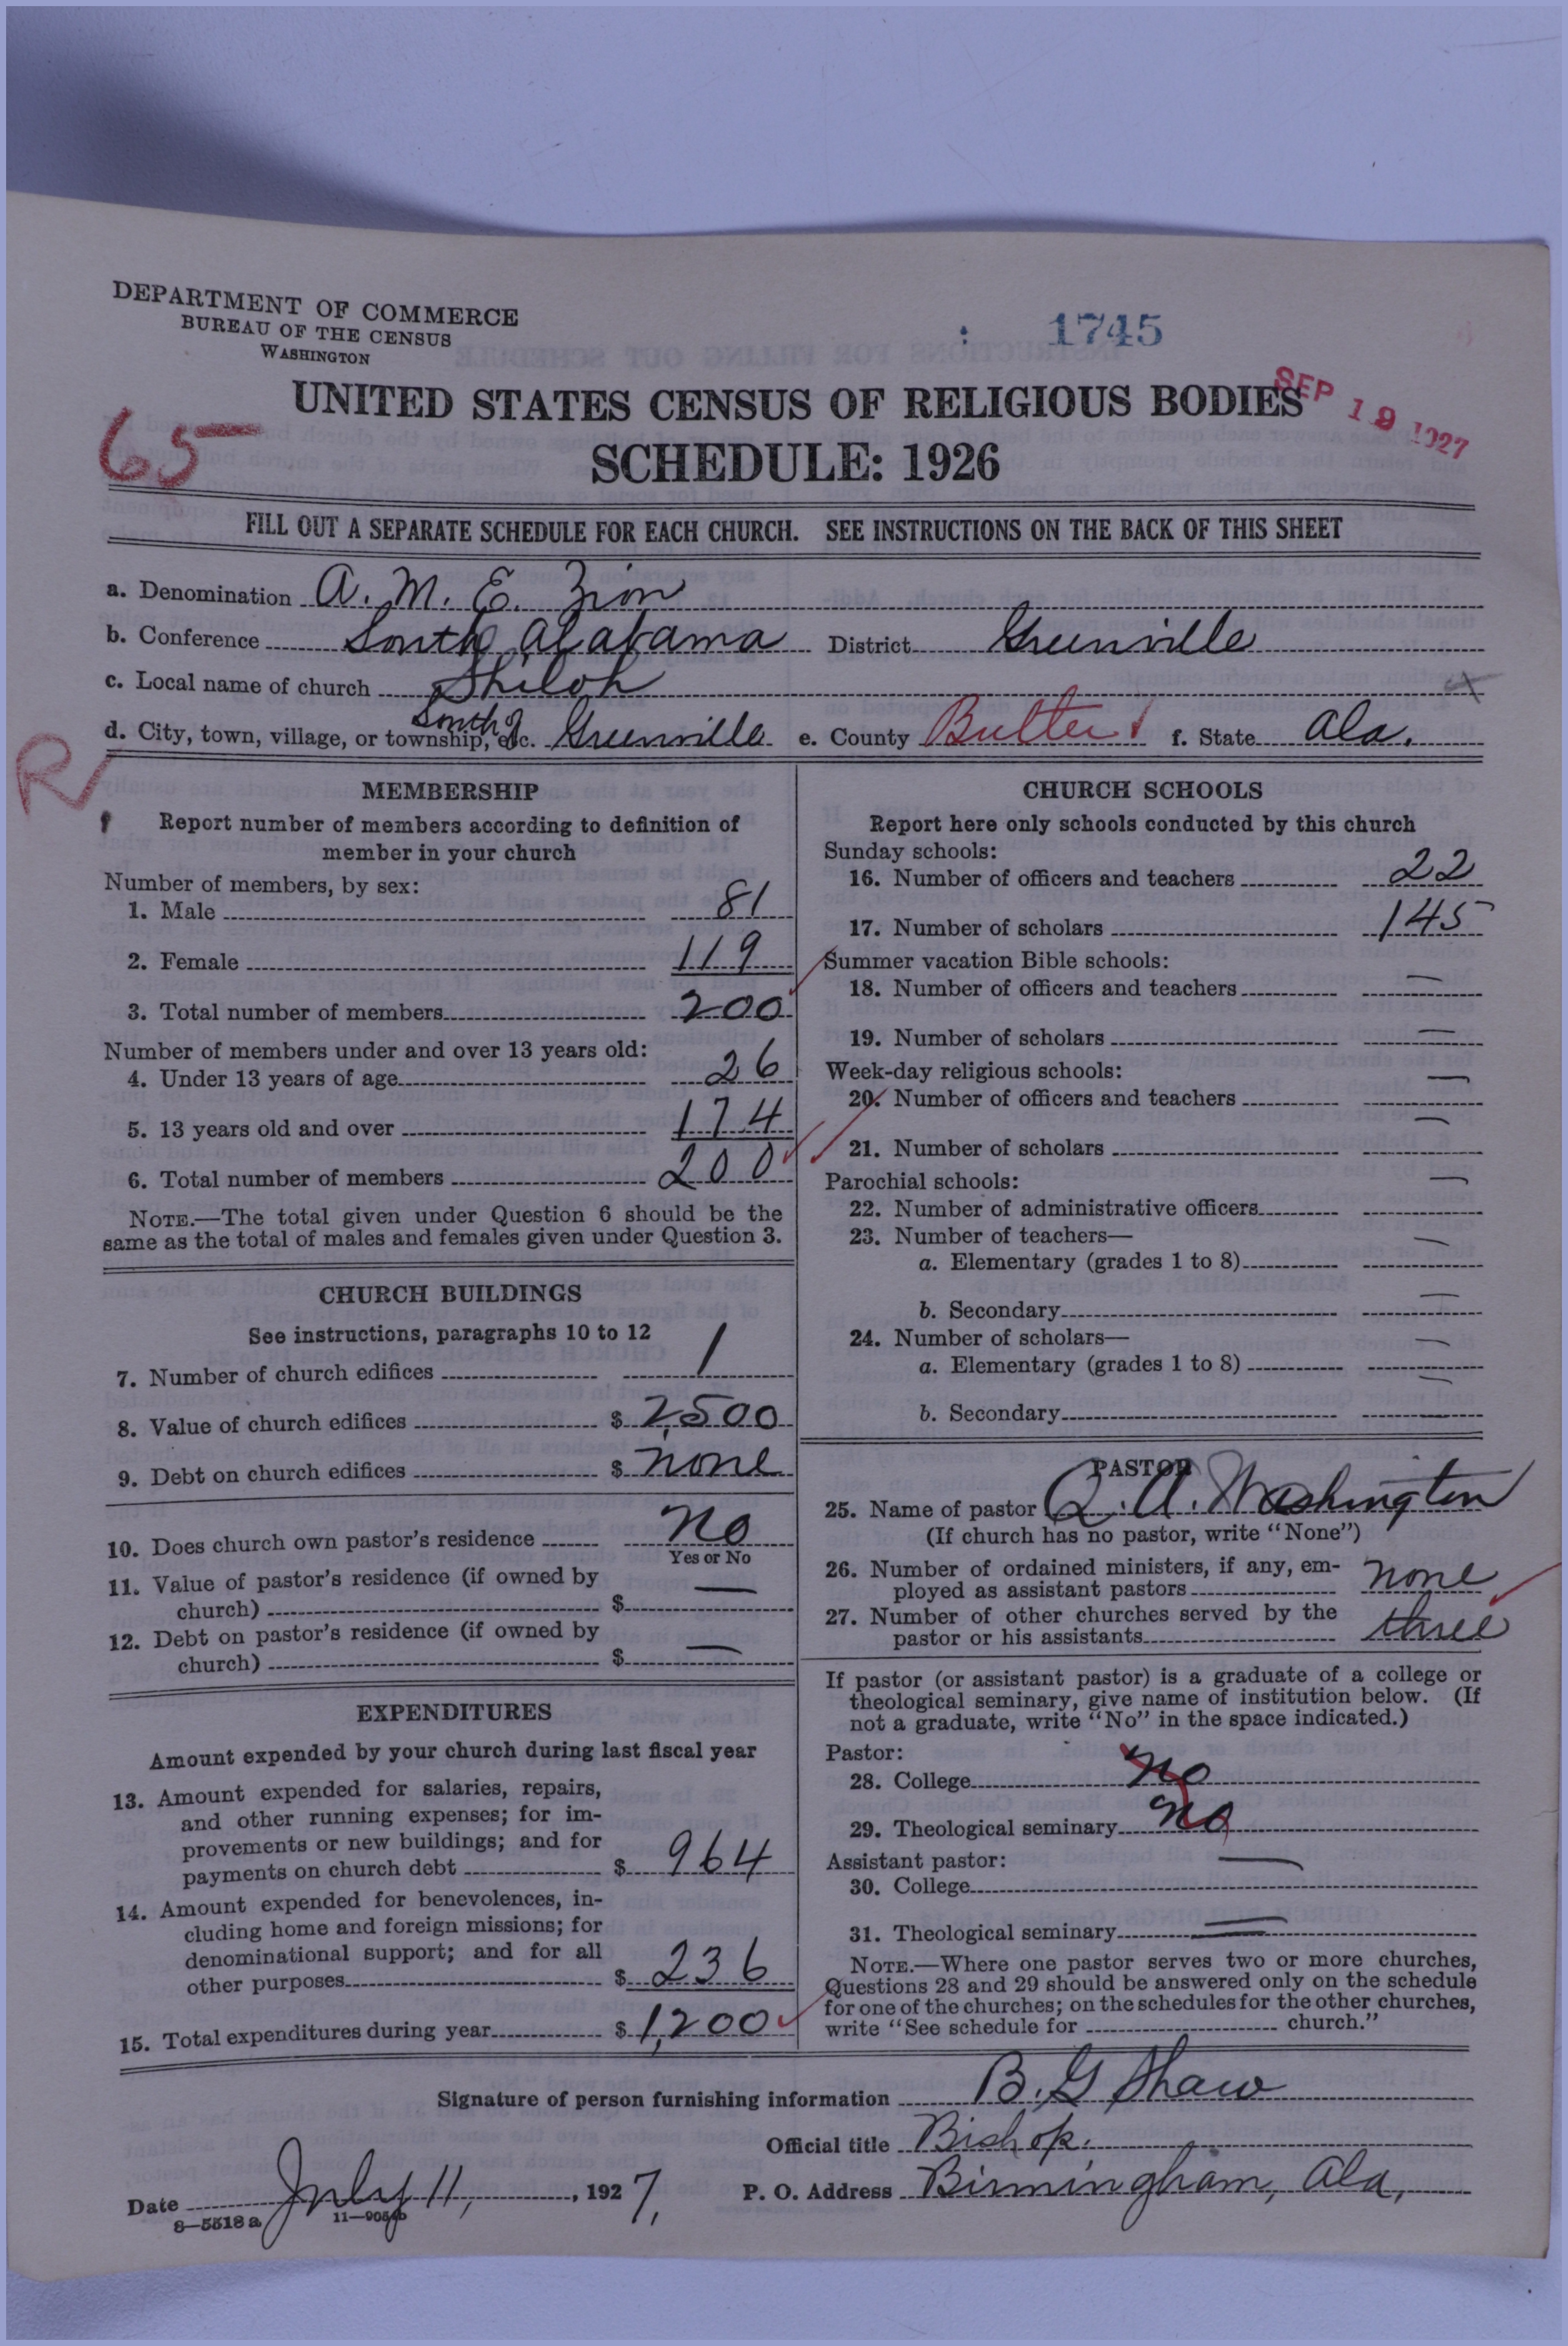 DEPARTMENT OF COMMERCE
BUREAU OF THE CENSUS
WASHINGTON
1745
UNITED STATES CENSUS OF RELIGIOUS BODIES
SEP 19 1927
65
SCHEDULE: 1926
FILL OUT A SEPARATE SCHEDULE FOR EACH CHURCH. SEE INSTRUCTIONS ON THE BACK OF THIS SHEET
a. Denomination A. M. E. Zion
b. Conference South Alabama District Greenville
c. Local name of church Shiloh
d. City, town, village, or township, etc. South of Greenville e. County Butler f. State Ala.
R
MEMBERSHIP
Report number of members according to definition of
member in your church
Number of members, by sex:
1. Male 81
2. Female 119
3. Total number of members 200
Number of members under and over 13 years old:
4. Under 13 years of age 26
5. 13 years old and over 174
6. Total number of members 200
NOTE.—The total given under Question 6 should be the
same as the total of males and females given under Question 3.
CHURCH BUILDINGS
See instructions, paragraphs 10 to 12
7. Number of church edifices 1
8. Value of church edifices $ 2,500
9. Debt on church edifices $ none
10. Does church own pastor's residence no
Yes or No
11. Value of pastor's residence (if owned by
church) $ —
12. Debt on pastor's residence (if owned by
church) $ —
EXPENDITURES
Amount expended by your church during last fiscal year
13. Amount expended for salaries, repairs,
and other running expenses; for im-
provements or new buildings; and for
payments on church debt $ 964
14. Amount expended for benevolences, in-
cluding home and foreign missions; for
denominational support; and for all
other purposes $ 236
15. Total expenditures during year $ 1,200
CHURCH SCHOOLS
Report here only schools conducted by this church
Sunday schools:
16. Number of officers and teachers 22
17. Number of scholars 145
Summer vacation Bible schools:
18. Number of officers and teachers —
19. Number of scholars —
Week-day religious schools:
20. Number of officers and teachers —
21. Number of scholars —
Parochial schools:
22. Number of administrative officers —
23. Number of teachers—
a. Elementary (grades 1 to 8) —
b. Secondary —
24. Number of scholars—
a. Elementary (grades 1 to 8) —
b. Secondary —
PASTOR
25. Name of pastor Q. A. Washington
(If church has no pastor, write "None")
26. Number of ordained ministers, if any, em-
ployed as assistant pastors none
27. Number of other churches served by the
pastor or his assistants three
If pastor (or assistant pastor) is a graduate of a college or
theological seminary, give name of institution below. (If
not a graduate, write "No" in the space indicated.)
Pastor:
28. College no
29. Theological seminary no
Assistant pastor:
30. College —
31. Theological seminary —
NOTE.—Where one pastor serves two or more churches,
Questions 28 and 29 should be answered only on the schedule
for one of the churches; on the schedules for the other churches,
write "See schedule for church."
Signature of person furnishing information B. G Shaw
Official title Bishop.
Date July 11, 1927, P. O. Address Birmingham, Ala,
8—5518 a 11—9051b